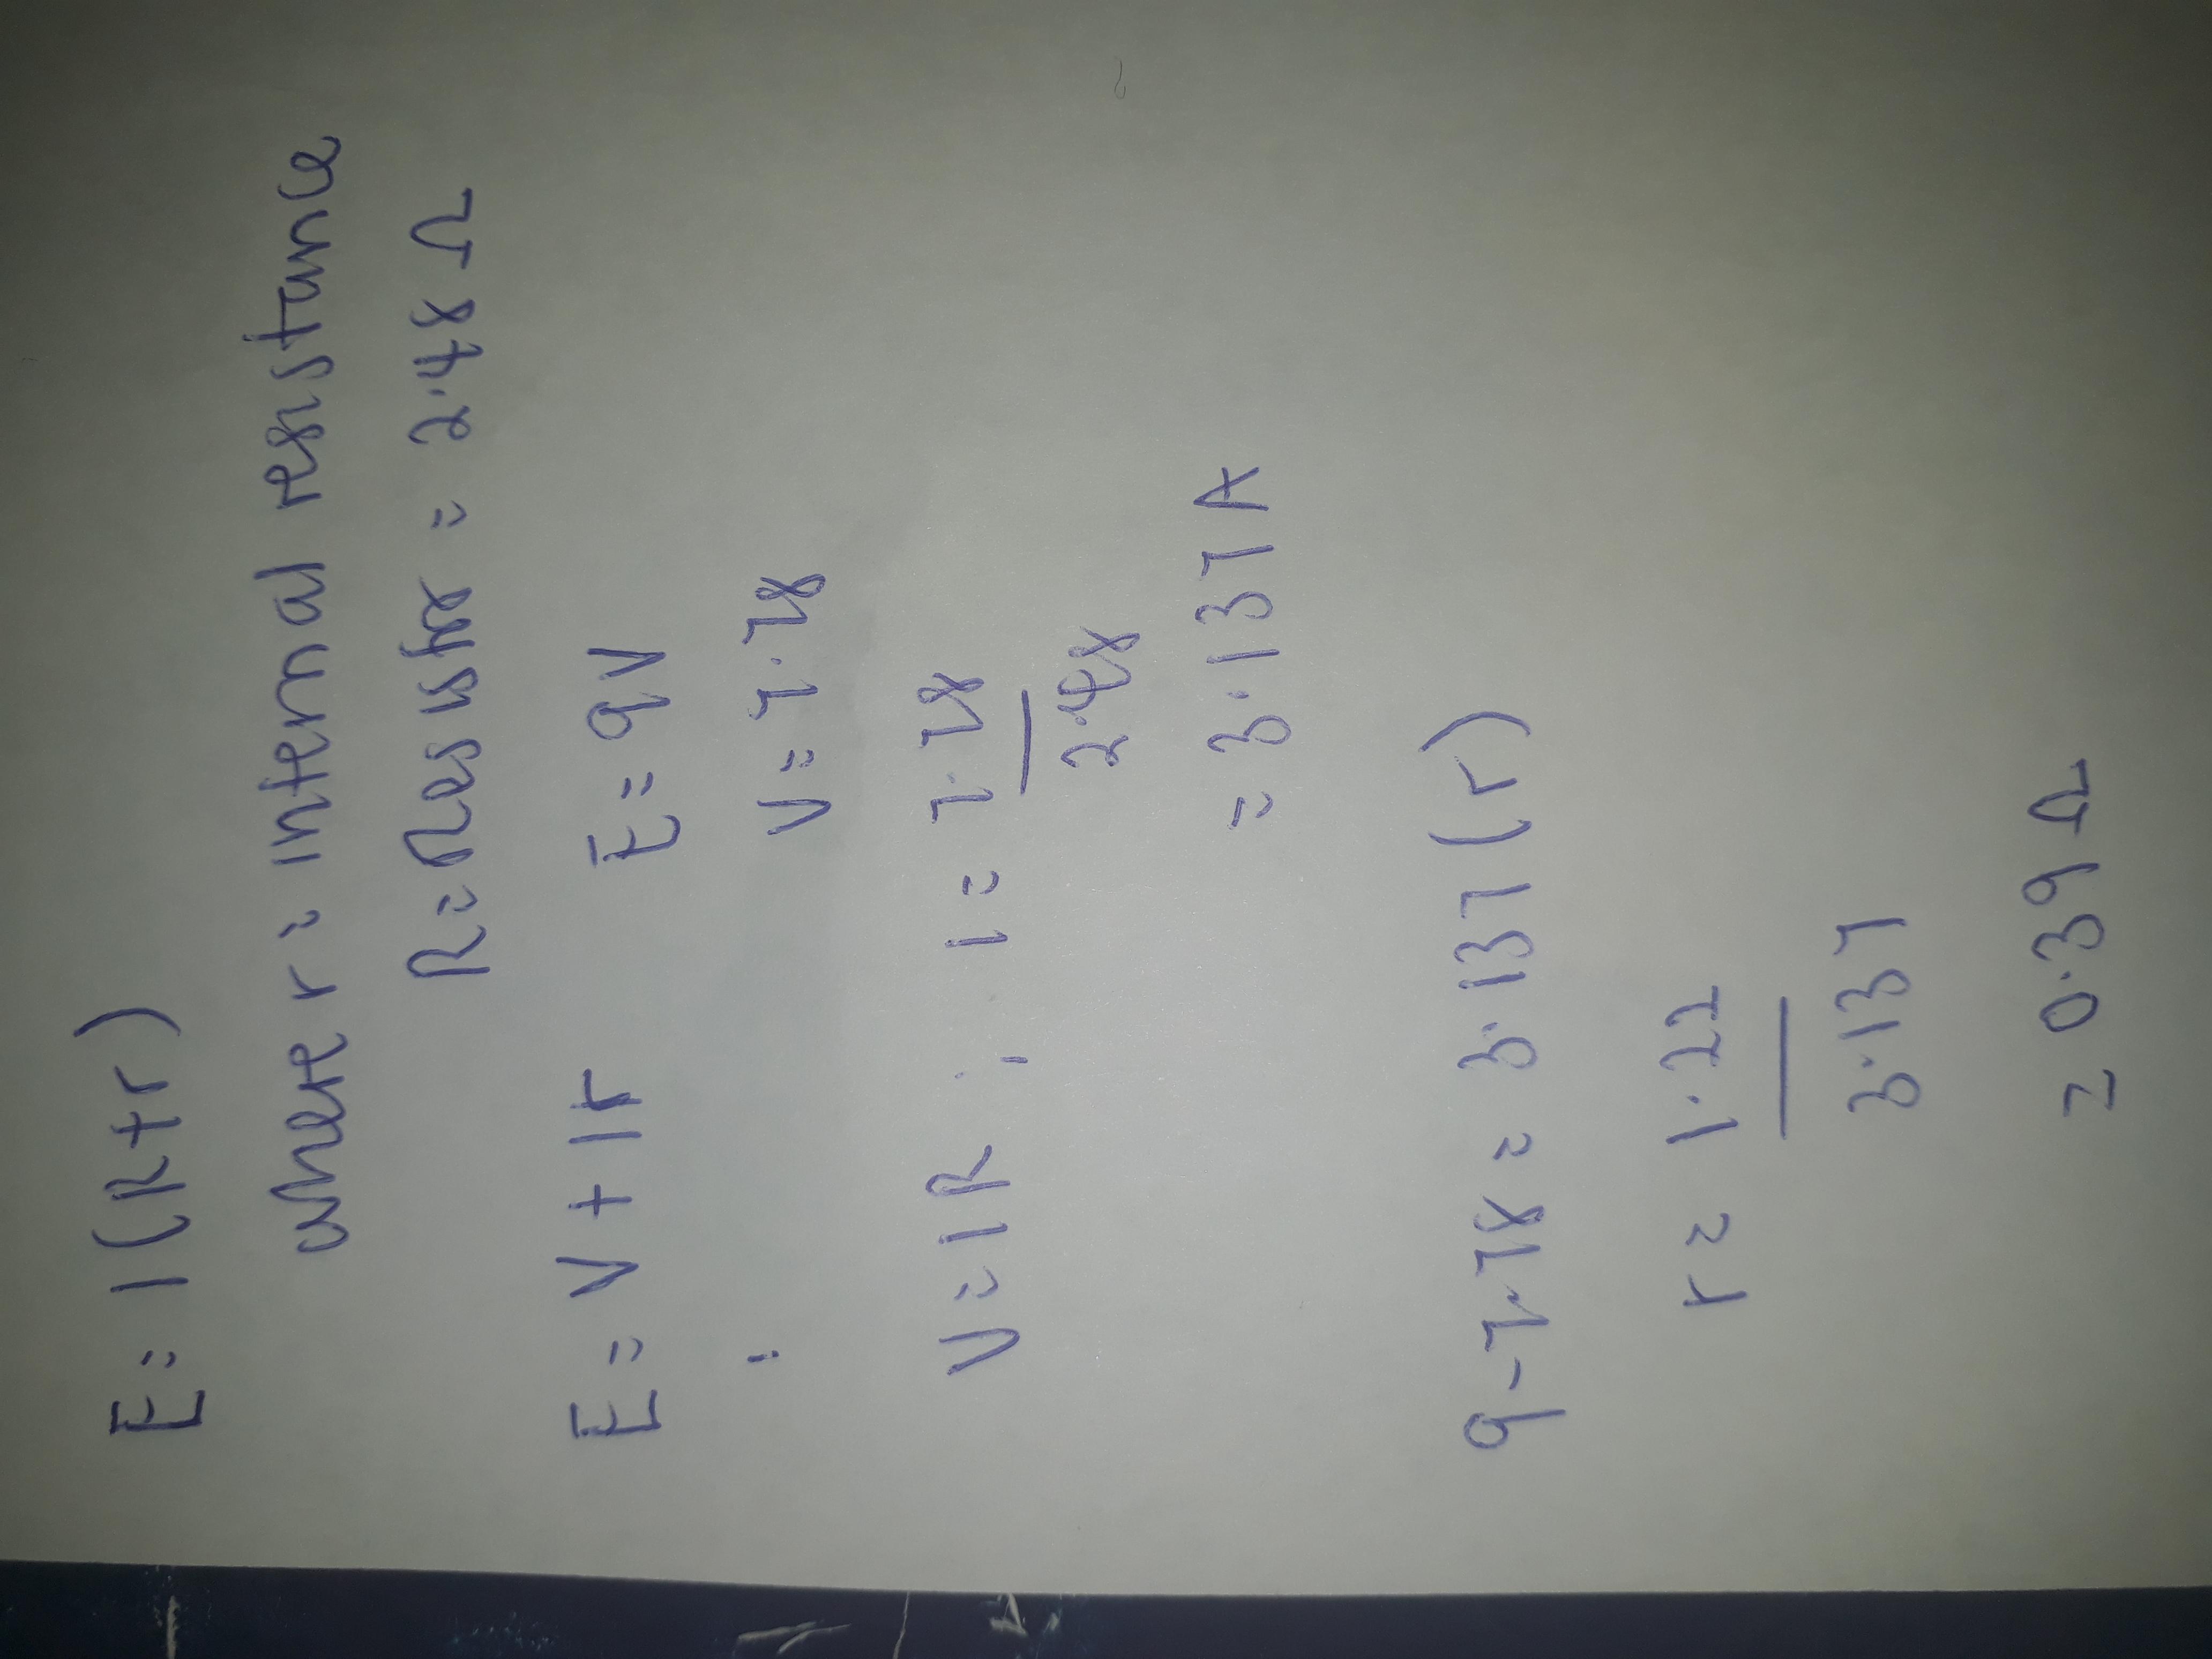 E = I(R+r)
where r = internal resistance
R = Resistor = 2.48 Ω
E = V + Ir E = 9V
: V = 7.78
V = IR ∴ I = 7.78
2.48
= 3.137 A
9 - 7.78 = 3.137 (r)
r = 1.22
3.137
= 0.39 Ω